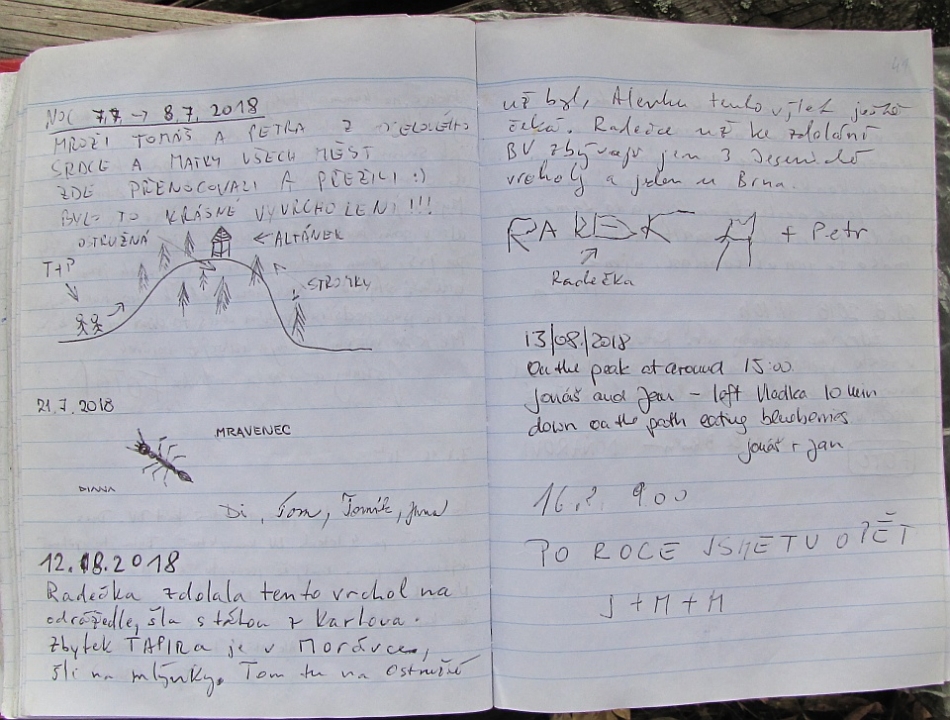 NOC 7.7. → 8.7. 2018
MRÁZI TOMÁŠ A PETRA Z
SRDCE A MATKY VŠECH MĚST
ZDE PŘENOCOVALI A PŘEŽILI :)
BYLO TO KRÁSNÉ VYVRCHOLENÍ !!!
OSTRUŽNÁ
← ALTÁNEK
T+P
STROMKY
21.7.2018
MRAVENEC
DIANA
Di, Tom, Tomík,
12.08.2018
Radečka zdolala tento vrchol na
odrážedle, šla s tátou z Karlova.
Zbytek TAPIRA je v Morávce,
šli na mlýnky. Tom tu na Ostružné
už byl, Alenku tento výlet ještě
čeká. Radečce už ke zdolání
BV zbývají jen 3 Jesenické
vrcholy a jeden u Brna.
RADEK + Petr
Radečka
13/08/2018
On the peak at around 15:00
Jonáš and Jan - left Vladka 10 min
down on the path eating blueberries
Jonáš + Jan
16.?. 9 00
PO ROCE JSME TU OPĚT
J + M + M